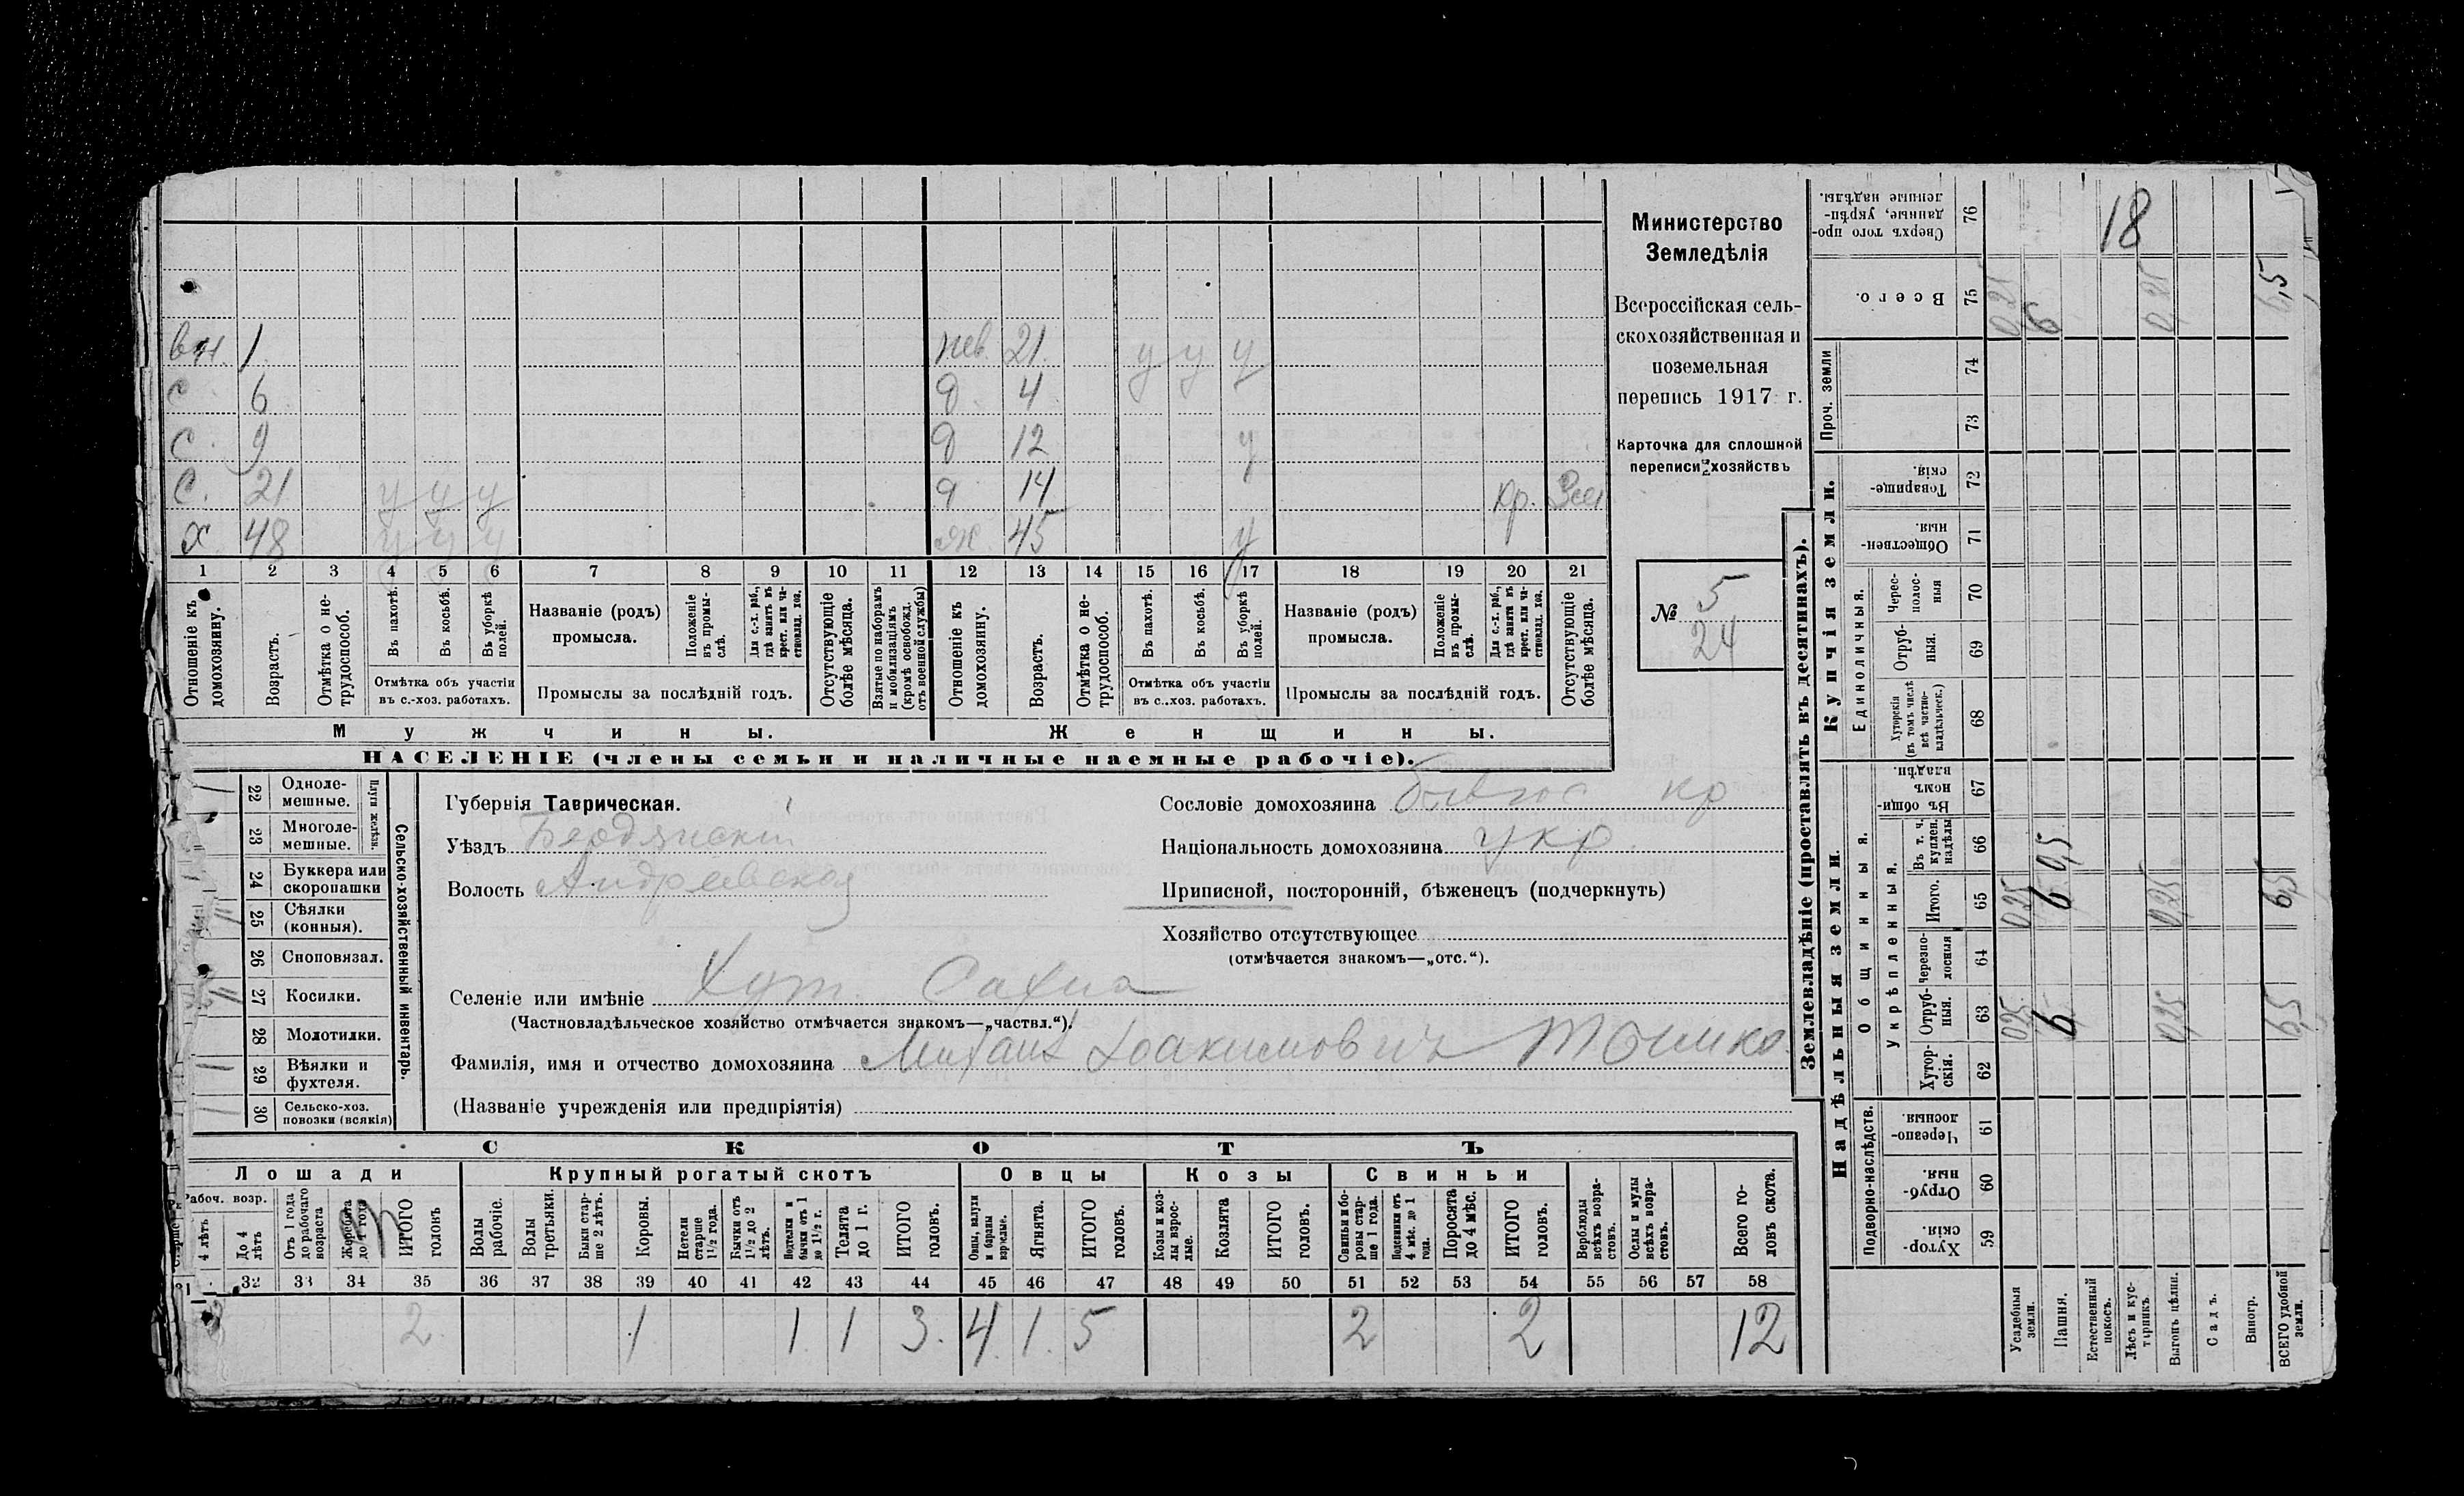 Министерство
Земледѣлія
Всероссійская сель-
скохозяйственная и
поземельная
перепись 1917 г.
Карточка для сплошной
переписи хозяйствъ
№ 5
24
вн. 1 нев. 21 у у у
с. 6 д. 4
с. 9 д 12 у
с. 21 у у у д 14 кр.
х 48 у у у ж 45 у
1 2 3 4 5 6 7 8 9 10 11 12 13 14 15 16 17 18 19 20 21
Отношеніе къ домохозяину.
Возрастъ.
Отмѣтка о не-трудоспособ.
Въ пахотѣ.
Въ косьбѣ.
Въ уборкѣ полей.
Отмѣтка объ участіи
въ с.-хоз. работахъ.
Названіе (родъ)
промысла.
Положеніе въ промы-слѣ.
Для с.-х. раб., гдѣ занятъ въ крест. или ча-стновлад. хоз.
Промыслы за послѣдній годъ.
Отсутствующіе болѣе мѣсяца.
Взятые по наборамъ и мобилизаціямъ (кромѣ освобожд. отъ военной службы)
Отношеніе къ домохозяину.
Возрастъ.
Отмѣтка о не-трудоспособ.
Въ пахотѣ.
Въ косьбѣ.
Въ уборкѣ полей.
Отмѣтка объ участіи
въ с..хоз. работахъ.
Названіе (родъ)
промысла.
Положеніе въ промы-слѣ.
Для с.-х. раб., гдѣ занята въ крест. или ча-стновлад. хоз.
Промыслы за послѣдній годъ.
Отсутствующіе болѣе мѣсяца.
Мужчины. Женщины.
НАСЕЛЕНІЕ (члены семьи и наличные наемные рабочіе).
Сельско-хозяйственный инвентарь.
Плуги желѣзн.
22 Одноле-мешные.
23 Многоле-мешные.
24 Буккера или скоропашки
25 Сѣялки (конныя).
26 Сноповязал.
27 Косилки.
28 Молотилки.
29 Вѣялки и фухтеля.
30 Сельско-хоз. повозки (всякія)
Губернія Таврическая.
Уѣздъ Бердянскій
Волость Андреевская
Селеніе или имѣніе Хут Сахна
(Частновладѣльческое хозяйство отмѣчается знакомъ—„частвл.“).
Фамилія, имя и отчество домохозяина Михаил Іоакимович
(Названіе учрежденія или предпріятія)
Сословіе домохозяина кр
Національность домохозяина укр.
Приписной, посторонній, бѣженецъ (подчеркнуть)
Хозяйство отсутствующее
(отмѣчается знакомъ—„отс.“).
СКОТЪ
Лошади Крупный рогатый скотъ Овцы Козы Свиньи
Рабоч. возр.
4 лѣтъ
До 4 лѣтъ
Отъ 1 года до рабочаго возраста
Жеребята до 1 года
ИТОГО головъ
Волы рабочіе.
Волы третьяки.
Быки стар-ше 2 лѣтъ.
Коровы.
Нетели старше 1½ года.
Бычки отъ 1½ до 2 лѣтъ.
Подтелки и бычки отъ 1 до 1½ г.
Телята до 1 г.
ИТОГО головъ.
Овцы, валухи и бараны взрослые.
Ягнята.
ИТОГО головъ.
Козы и коз-лы взрос-лые.
Козлята
ИТОГО головъ.
Свиньи и бо-ровы стар-ше 1 года.
Подсвинки отъ 4 мѣс. до 1 года.
Поросята до 4 мѣс.
ИТОГО головъ.
Верблюды всѣхъ возра-стовъ.
Ослы и мулы всѣхъ возра-стовъ.
Всего го-ловъ скота.
31 32 33 34 35 36 37 38 39 40 41 42 43 44 45 46 47 48 49 50 51 52 53 54 55 56 57 58
2 1 1 1 3. 4 1. 5 2 2 12
Землевладѣніе (проставлять въ десятинахъ).
Надѣльныя земли. Купчія земли. Проч. земли
Подворно-наслѣдств.
Общинныя.
Укрѣпленныя.
Единоличныя.
59 Хутор-скія.
60 Отруб-ныя.
61 Черезпо-лосныя
62 Хутор-скія.
63 Отруб-ныя.
64 Черезпо-лосныя
65 Итого.
66 Въ т. ч. куплен. надѣлы
67 Въ общин-номъ владѣн.
68 Хуторскія (въ томъ числѣ всѣ частно-владѣльческ.)
69 Отруб-ныя.
70 Черес-полос-ныя
71 Обществен-ныя.
72 Товарище-скія.
73
74
75 Всего.
76 Сверхъ того про-данные, укрѣп-ленные надѣлы.
Усадебныя земли. 0,25 0,25 0,25
Пашня. 6 6 0,5 6
Естественный покосъ.
Лѣсъ и кус-тарникъ. 18
Выгонъ цѣлин. 0,25 0,25 0,25
Садъ.
Виногр.
ВСЕГО удобной земли. 6,5 6,5 6,5